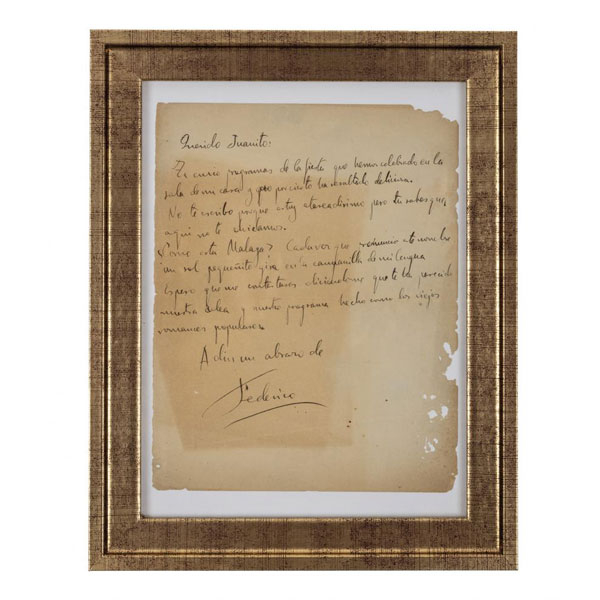 Querido Juanito:
Te envio programas de la fiesta que hemos celebrado en la
sala de mi casa y que por cierto ha resultado divina.
No te escribo porque estoy atareadisimo pero tu sabes que
aqui no te olvidamos.
Como está Malaga? Cada vez que pronuncio este nombre
un sol pequeñito gira en la campanilla de mi lengua
Espero que me contestaras diciendome que te ha parecido
nuestra idea y nuestro programa hecho como los viejos
romances populares.
Adios un abrazo de
Federico